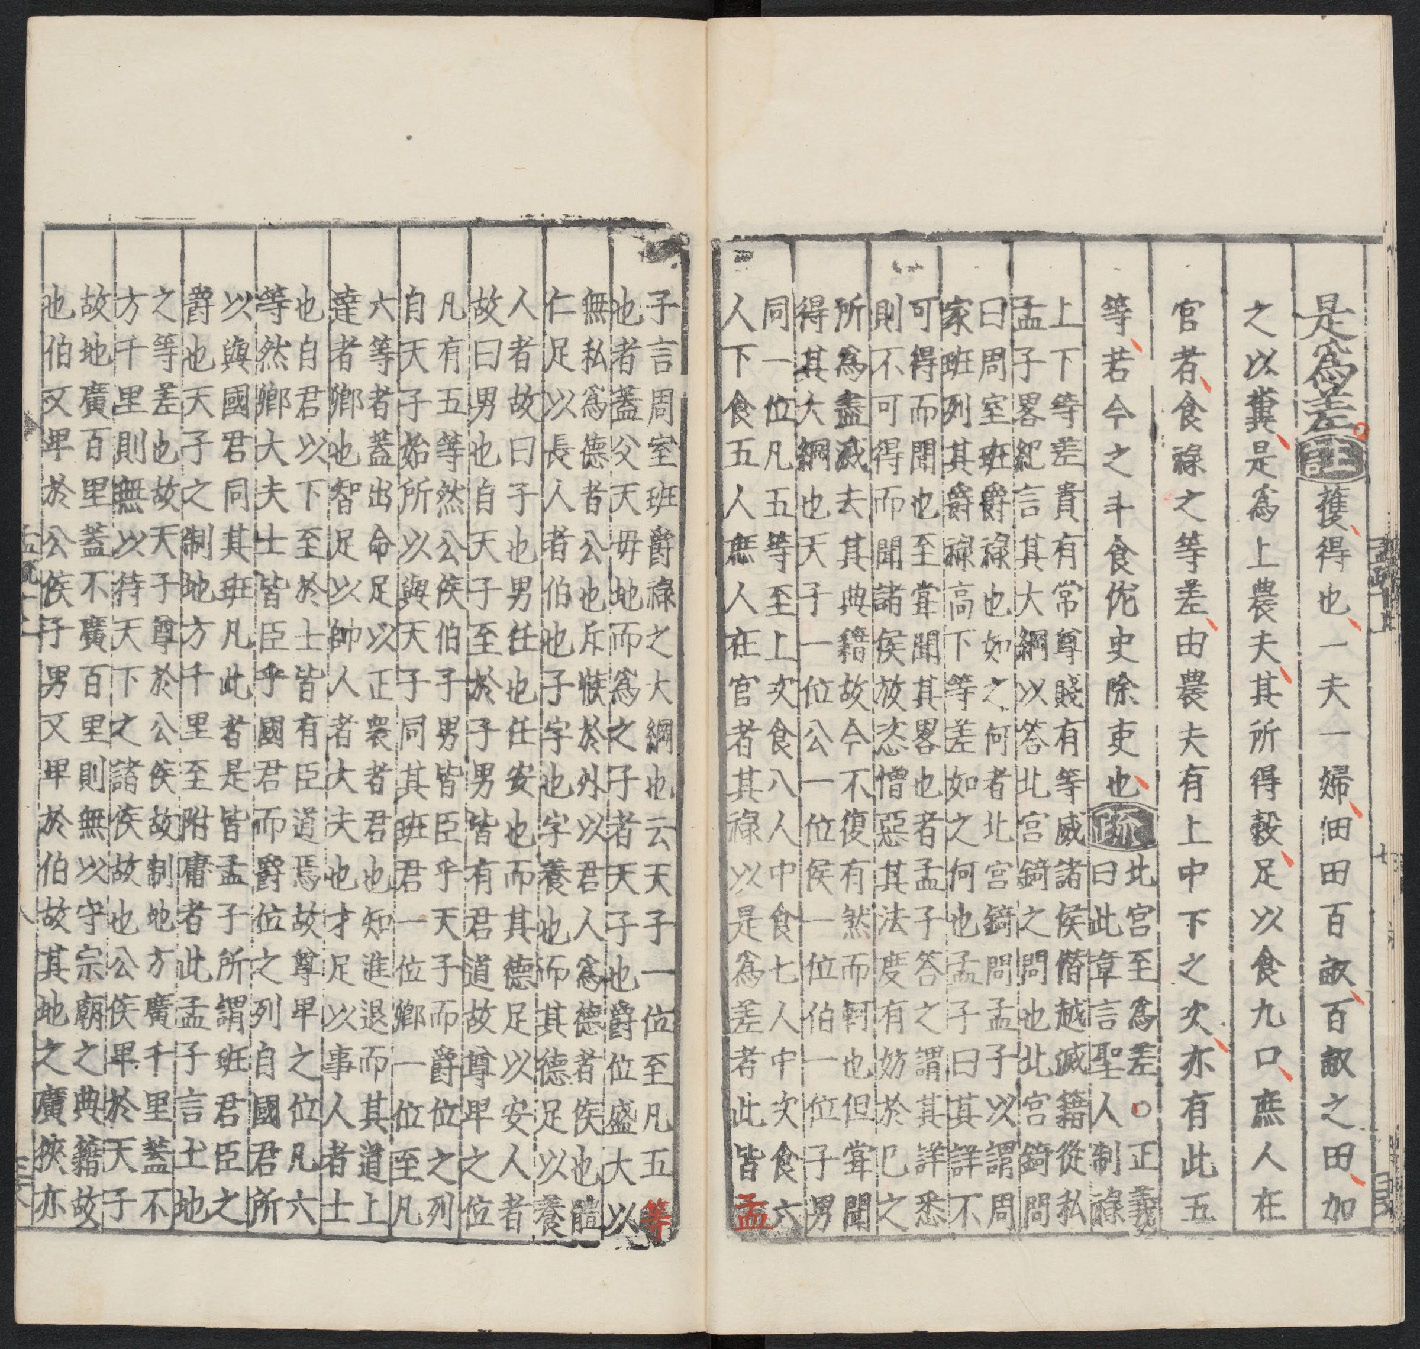 是爲差○註獲得也一夫一婦佃田百畝百畝之田加
之以糞是爲上農夫其所得穀足以食九口庶人在
官者食祿之等差由農夫有上中下之次亦有此五
等若今之斗食佐史除吏也疏北宮至爲差○正義
曰此章言聖人制祿
上下等差貴有常尊賤有等威諸侯僭越滅籍從私
孟子畧紀言其大綱以答北宮錡之問也北宮錡問
曰周室班爵祿也如之何者北宮錡問孟子以謂周
家班列其爵祿高下等差如之何也孟子曰其詳不
可得而聞也至甞聞其畧也者孟子答之謂其詳悉
則不可得而聞諸侯放恣憎惡其法度有妨於已之
所爲盡滅去其典籍故今不復有然而軻也但甞聞
得其大綱也天子一位公一位侯一位伯一位子男
同一位凡五等至上次食八人中食七人中次食六
人下食五人庶人在官者其祿以是爲差者此皆孟
子言周室班爵祿之大綱也云天子一位至凡五等
也者蓋父天毋地而爲之子者天子也爵位盛大以
無私爲德者公也斥候於外以君人爲德者侯也體
仁足以長人者伯也子字也字養也而其德足以養
人者故曰子也男任也任安也而其德足以安人者
故曰男也自天子至於子男皆有君道故尊卑之位
凡有五等然公侯伯子男皆臣乎天子而爵位之列
自天子始所以與天子同其班君一位卿一位至凡
六等者蓋出命足以正衆者君也知進退而其道上
達者卿也智足以帥人者大夫也才足以事人者士
也自君以下至於士皆有臣道焉故尊卑之位凡六
等然卿大夫士皆臣乎國君而爵位之列自國君所
以與國君同其班凡此者是皆孟子所謂班君臣之
爵也天子之制地方千里至附庸者此孟子言土地
之等差也故天子尊於公侯故制地方廣千里蓋不
方千里則無以待天下之諸侯故也公侯卑於天子
故地廣百里蓋不廣百里則無以守宗廟之典籍故
也伯又卑於公侯子男又卑於伯故其地之廣狹亦